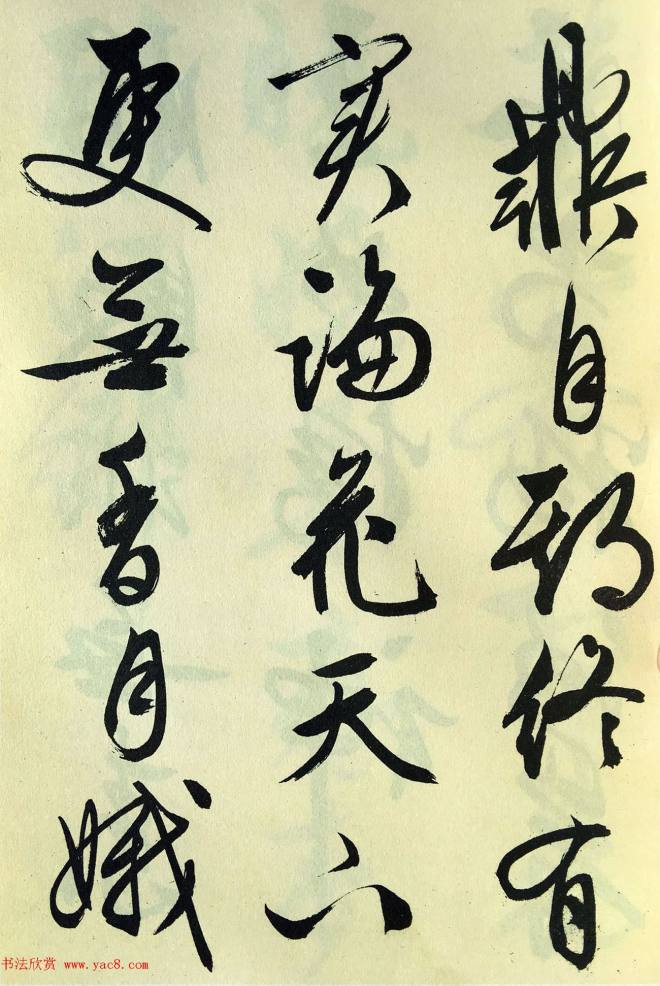 鼎自期終有
實論花天下
更無香月娥
书法欣赏 www.yac8.com